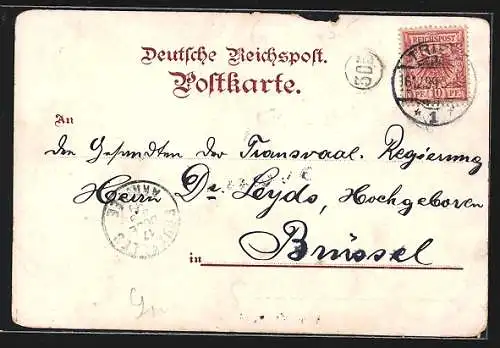 Deutsche Reichspost.
Postkarte.
REICHSPOST
10 PF
* 1
An
den Gesandten der Transvaal. Regierung
Herrn Dr. Leyds, Hochgeboren
Brüssel
in